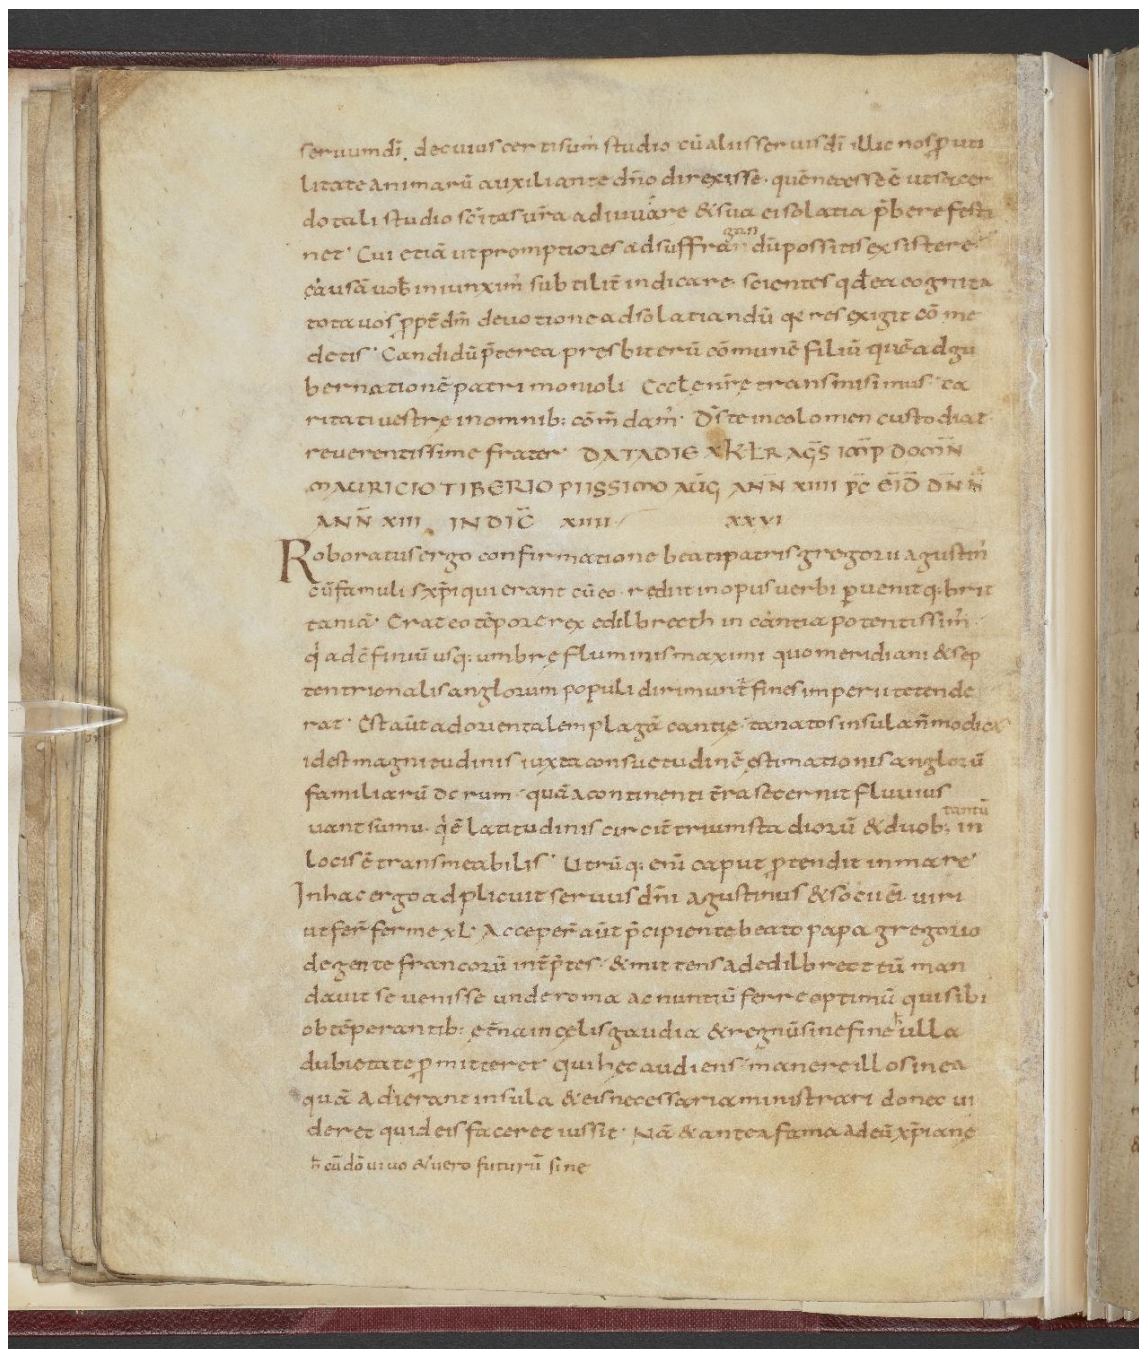 seruum dī. de cuius certi sum̄ studio cū aliis seruis dī illic nos ꝓ uti
litate animarū auxiliante dn̄o direxisse. quē necesse ē ut sacer
dotali studio sc̄itas ur̄a adiuuare & sua ei solatia p̄bere festi
net. Cui etiā ut promptiores ad suffragandū possitis exsistere.
causā uob̄ iniunxim̄ subtilit̄ indicare. scientes qd̄ ea cognita
tota uos ꝓpt̄ dm̄ deuotione ad solatiandū q̄ res exigit cōme
detis. Candidū p̄terea presbiterū cōmunē filiū quē ad gu
bernationē patrimonioli ęccl̄ę nr̄ę transmisimus. ca
ritati uestrę in omnib: cōm̄dam̄. D̄s te incolomen custodiat
reuerentissime frater. DATA DIE X KLR AGS̄ IMP̄ DOMN̄
MAURICIO TIBERIO PIISSIMO AUḠ ANN̄ XIIII PC̄ EID̄ DN̄N̄
ANN̄ XIII INDIC̄ XIIII XXVI
Roboratus ergo confirmatione beati patris gregorii agustin̄
cū famulis xp̄i qui erant cū eo. rediit in opus uerbi ꝑuenitq: brit
taniā. Erat eo tēpore rex edilbrecth in cantia potentissim̄.
q̇ ad cōfiniū usq: umbrę fluminis maximi quo meridiani & sep
tentrionalis anglorum populi dirimunt̄ fines imperii tetende
rat. Est aūt ad orientalem plagā cantię. tanatos insula n̄ modica
id est magnitudinis iuxta consuetudinē ęstimationis anglorū
familiarū DC rum. quā a continenti t̄ra secernit fluuius
uantsumu. q̇ ē latitudinis circit̄ trium stadiorū & duob: tantū in
locis ē transmeabilis. Utrūq: enī caput ꝓtendit in mare
In hac ergo adplicuit seruus dn̄i agustinus & socii ei. uiri
ut fer̄ ferme xl. Acceper̄ aūt p̄cipiente beato papa gregorio
de gente francorū int̄p̄tes. & mittens ad edilbrectcū man
dauit se uenisse unde roma ac nuntiū ferre optimū qui sibi
obtēperantib: et̄na in cęlis gaudia & regnū sine fine h̄ ulla
dubietate ꝓmitteret. Qui hęc audiens. manere illos in ea
quā adierant insula & eis necessaria ministrari donec ui
deret quid eis faceret iussit. Nā & antea fama ad eū xp̄ianę
h̄ cū dō uiuo & uero futurū sine